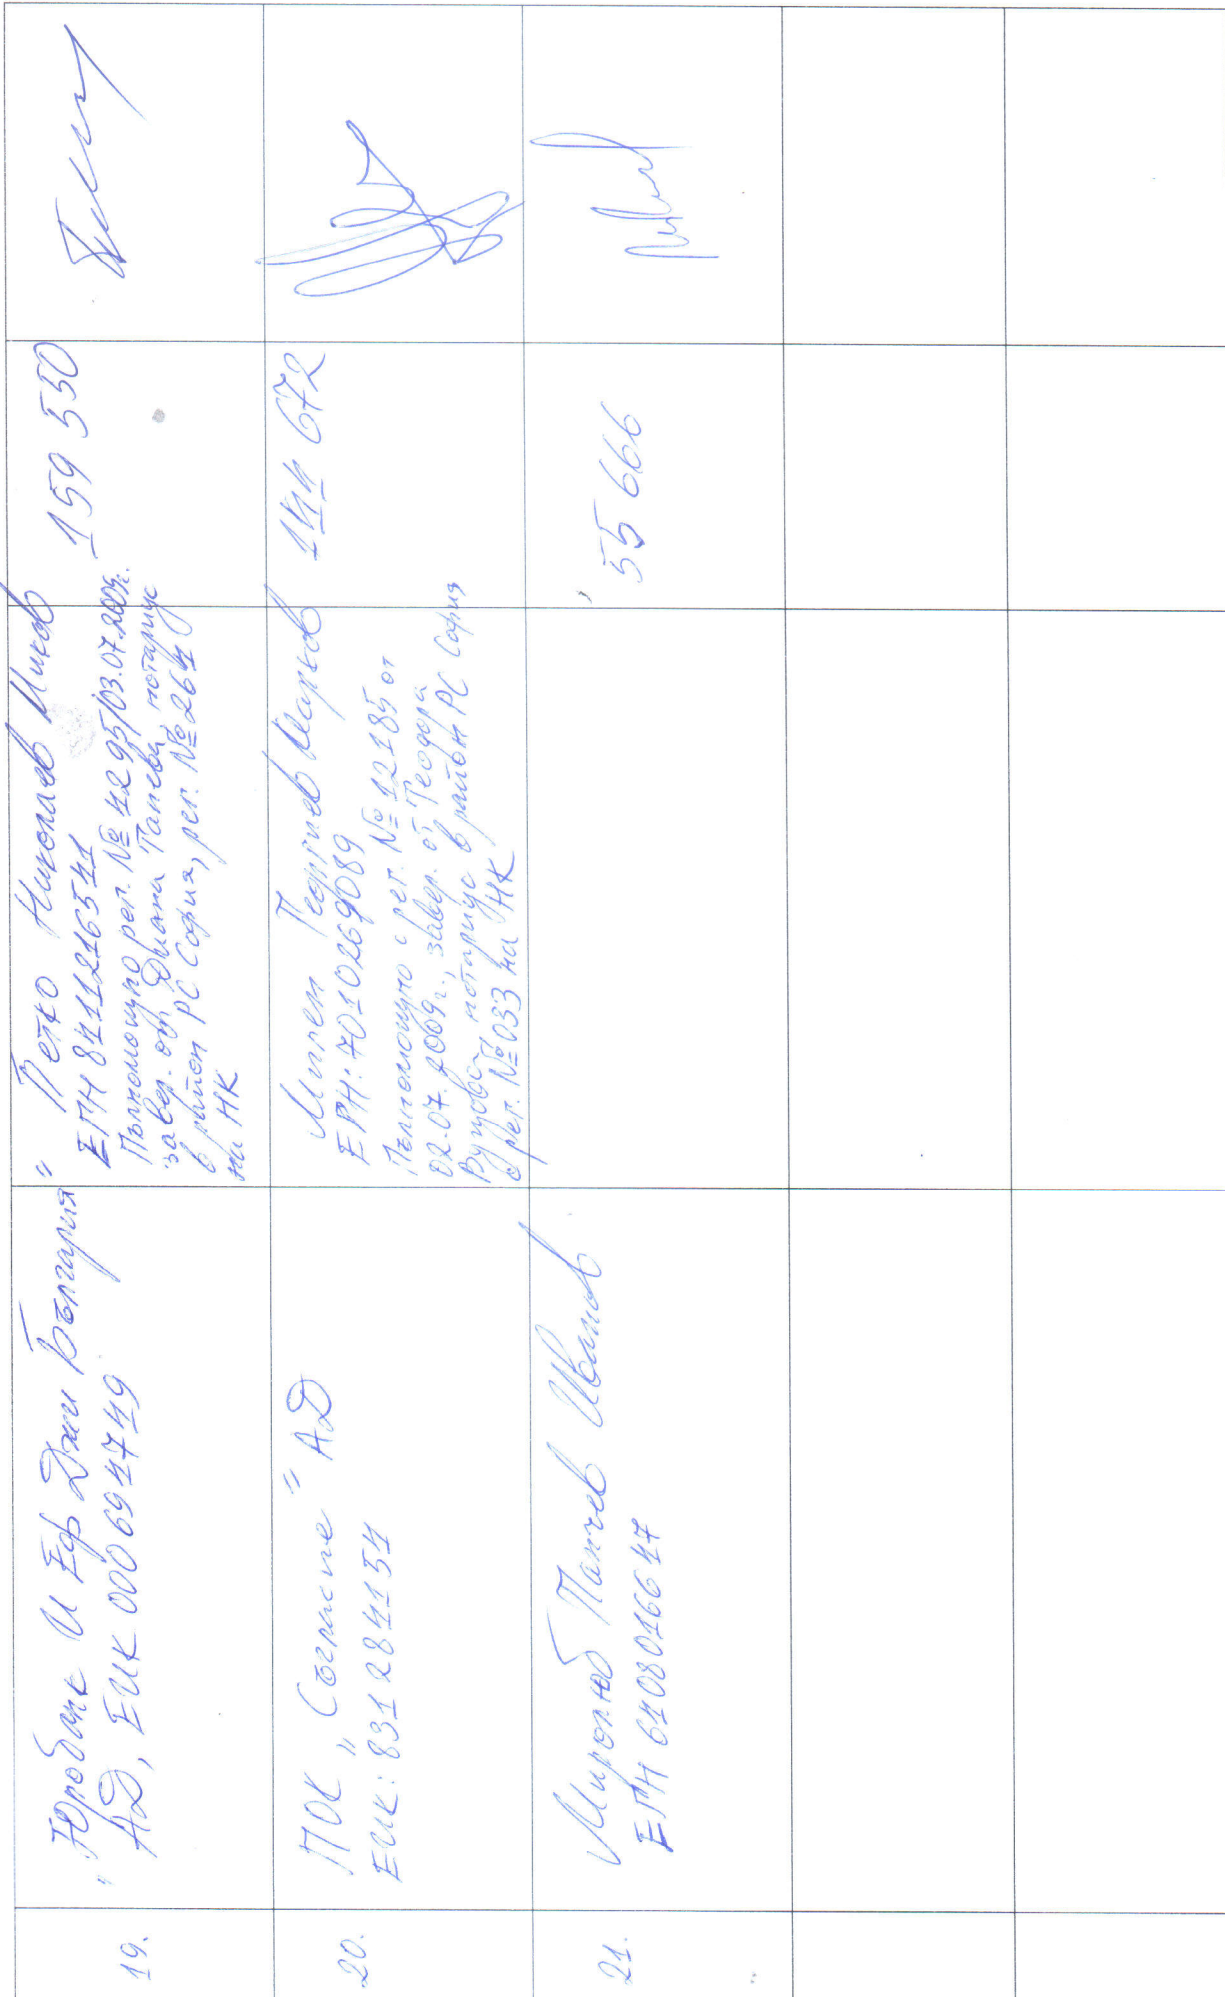 19.
„Юробанк И Еф Джи България"
АД, ЕИК 000694749
Петко Николаев
ЕГН 8411216541
Пълномощно рег. № 4295/03.07.2009г.
завер. от Диана Танева, нотариус
в район РС София, рег. № 264
на НК
159 550
20.
ПОК „Съгласие" АД
ЕИК: 831284154
Милен Георгиев Марков
ЕГН: 7010269089
Пълномощно с рег. № 12185 от
02.07.2009г., завер. от Теодора
Вуцова нотариус в район РС София
с рег. № 033 на НК
144 672
21.
Миролюб Панчев Иванов
ЕГН 6408016647
55 666